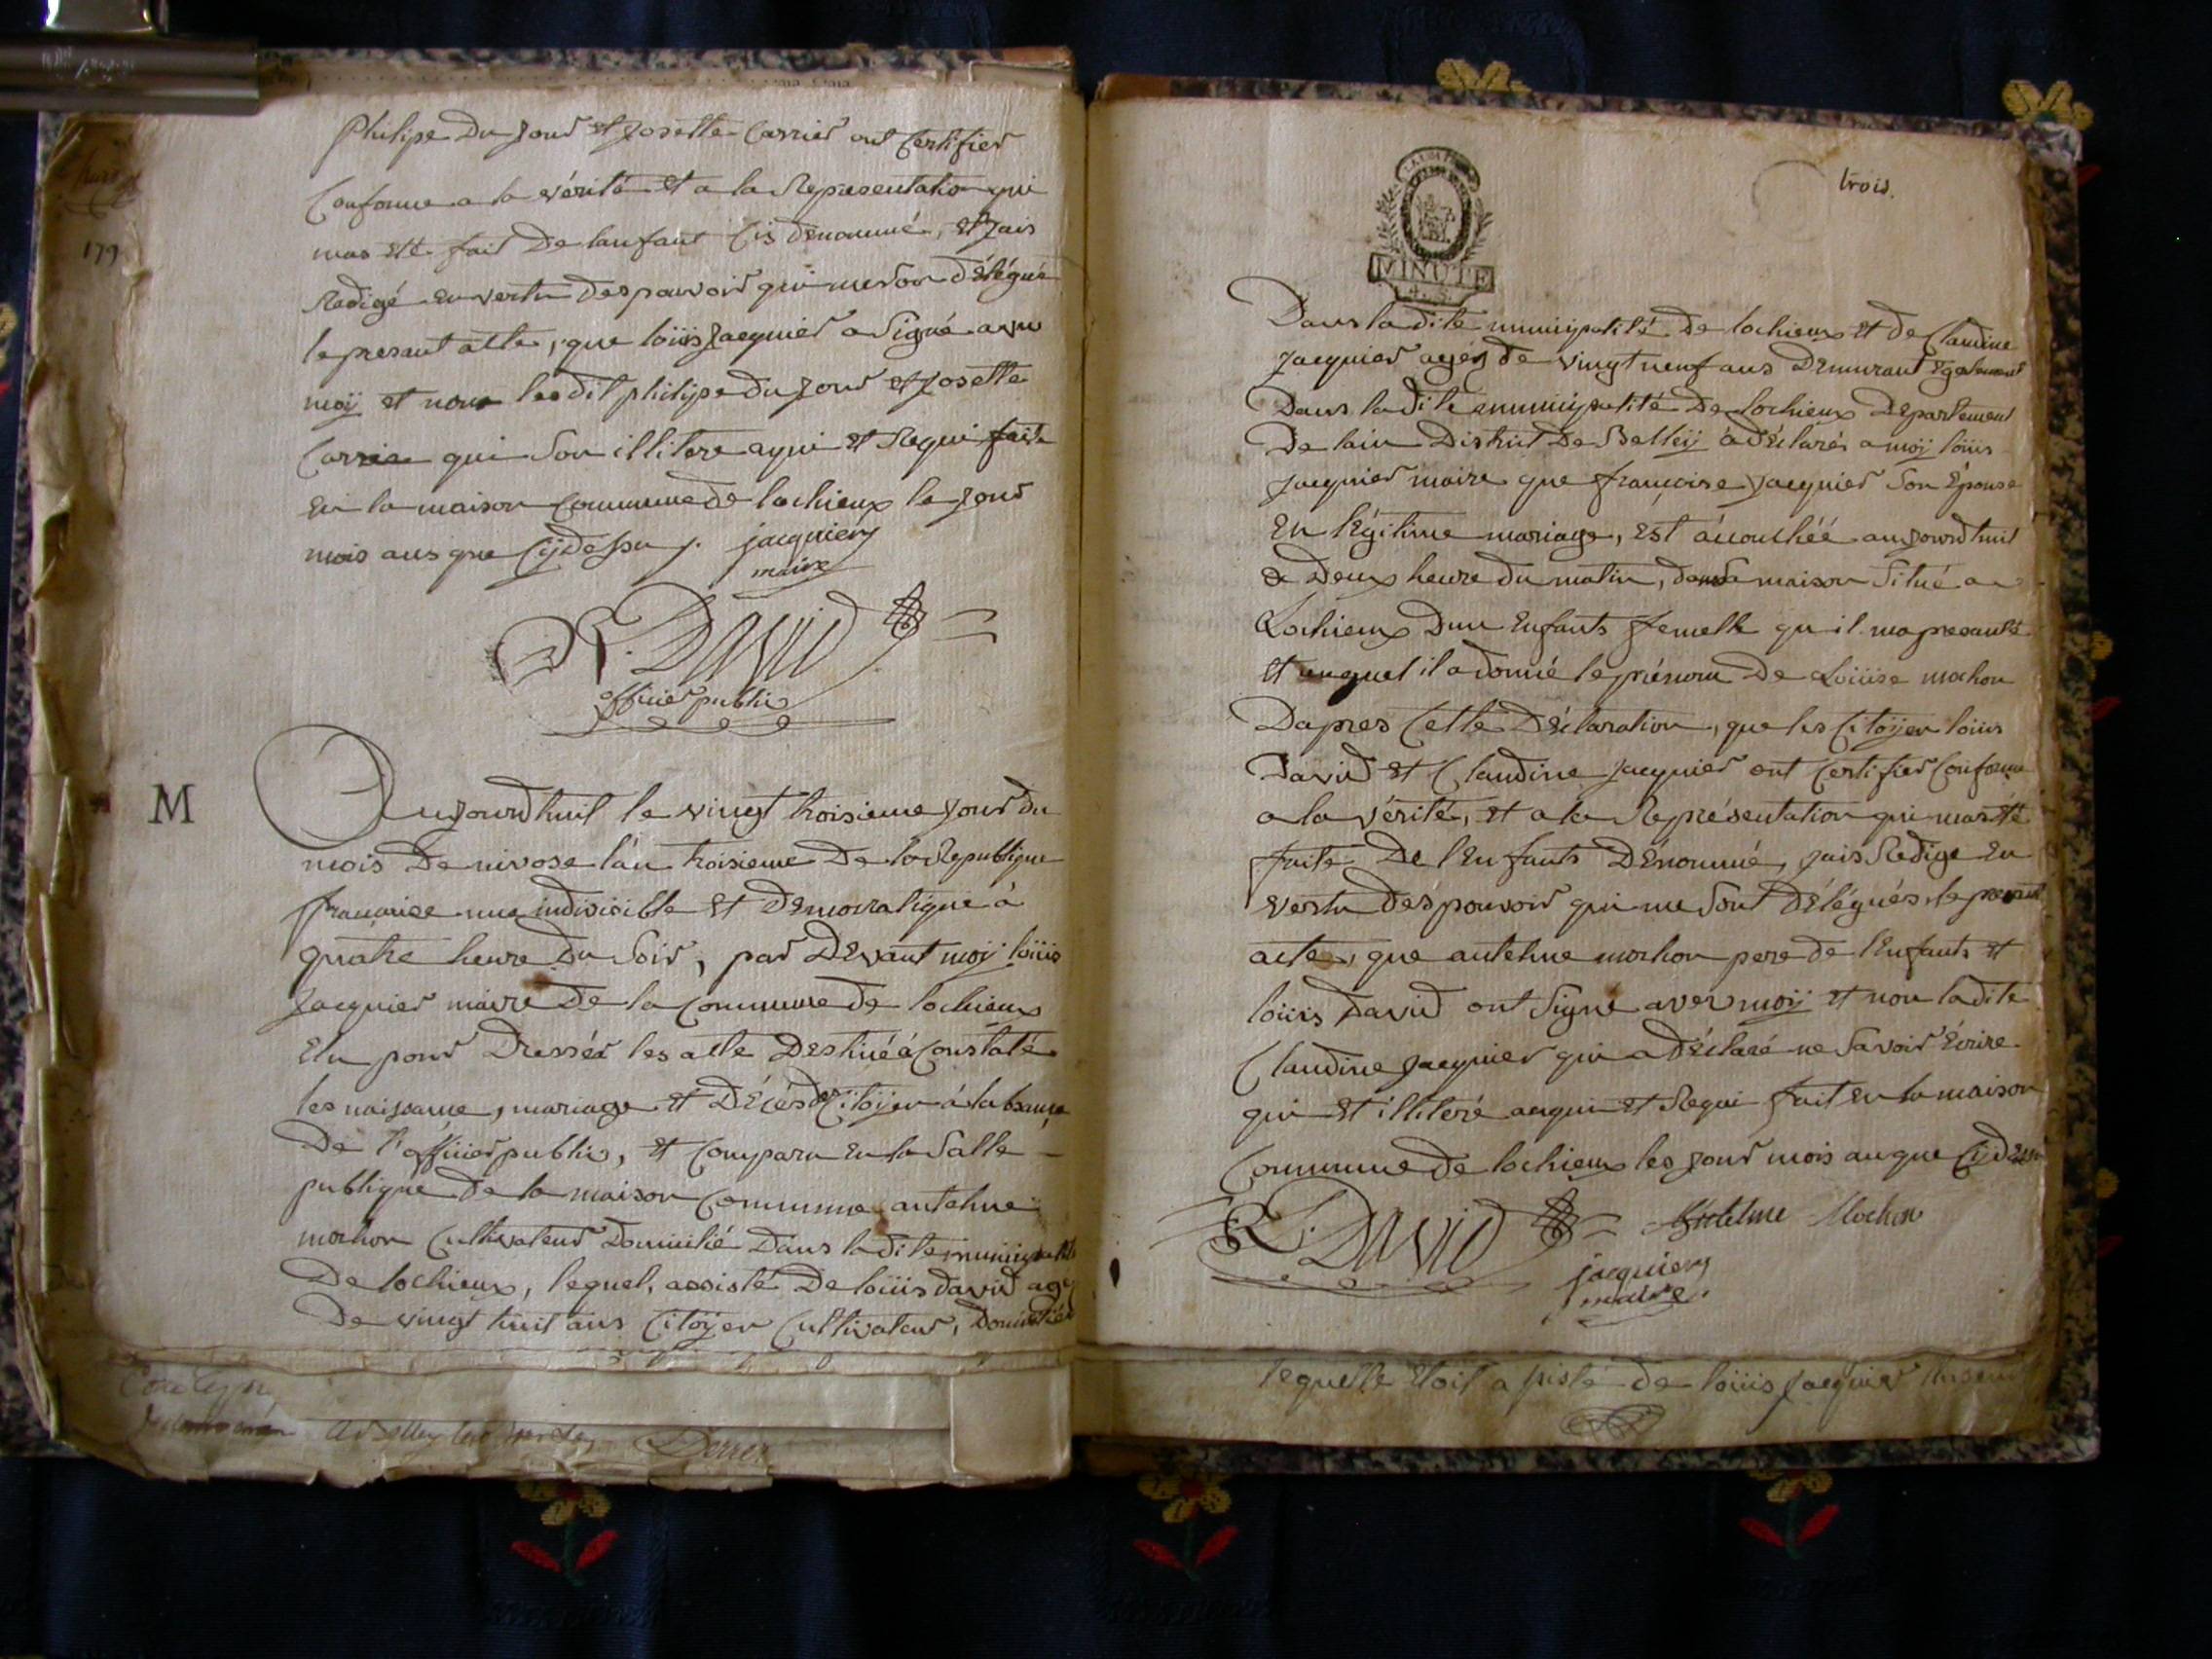 philipe du jour et josette Carrier ont Certifier
Conforme a la vérité et a la Representation qui
mas été fait de lanfant Cis dénommé, et jais
Redigé en vertu des pouvoir qui me son délégué
le presant acte, que loüis jacquier a Signé avec
moÿ et non les dit philipe du jour et josette
Carrier qui Son illitere aqui et Requi fait
En la maison Commune de lochieux le jour
mois ans que Cÿ dessu
jacquier
maire
R. DAVID
officier public
179
M
Aujourdhuit le vingt troisieme jour du
mois de nivose l'an troisieme de la Republique
francaise une indivisible et démocratique à
quatre heure du Soir, par devant moÿ loüis
jacquier maire de la Commune de lochieux
Elu pour dressér les acte destiné à Constaté
les naissance, mariage et décés des Citoÿen à labsance
de l'officier public, et Comparu en la Salle
publique de la maison Commune antelme
mochon Cultivateur domicilié dans la dite municipalité
de lochieux, lequel, assisté de loüis david agé
de vingt huit ans Citoÿen Cultivateur, domicilié
Derrer
trois.
MINUTE
dans la dite municipalité de lochieux et de Claudine
jacquier agéz de vingt neuf ans demeurant Egalement
dans la dite municipalité de lochieux departement
de lain district de Belleÿ à déclarés a moÿ loüis
jacquier maire que francoise jacquier Son Épouse
En légitime mariage, ést ácouchéé aujourdhuit
a deux heure du matin, dans Sa maison Situé a
Lochieux dun Enfants femelle qu il ma presanté
et auquel il a donné le prénom de Loüise mochon
dapres Cette déclaration, que les Citoÿen loüis
david et Claudine jacquier ont Certifier Conforme
a la vérité, et a la Représentation qui mas été
faite de l'Enfants dénommé, jais Redige En
vertu des pouvoir qui me Sont délégués, le presant
acte, que antelme mochon pere de l'Enfants et
loüis david ont Signe avec moÿ et non la dite
Claudine jacquier qui a déclaré ne Savoir Écrire
qui et illiteré aequi et Requi fait En la maison
Commune de lochieux les jour mois an que Cÿ dessu
R. DAVID
Antelme Mochon
jacquier
maire.
lequelle Etoit assisté de loüis jacquier